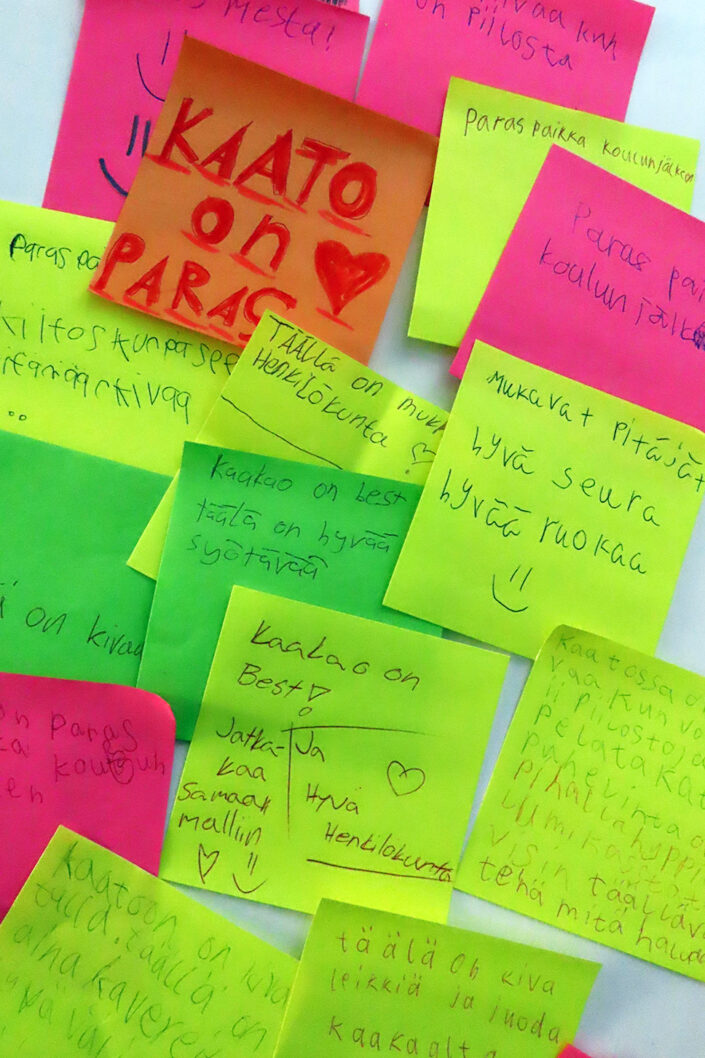 MESTA!
kivaa kun
on piilosta
KAATO
on
PARAS
Paras paikka koulunjälkeen
Paras pai
koulun jälk
Paras pa
kiitos kun
kivaa
TÄÄLLÄ on muk
Henkilökunta
mukavat pitäjät
hyvä seura
hyvää ruokaa
kaakao on best
täälä on hyvää
syötävää
on kivaa
Kaakao on
Best!
Jatka-
kaa
Samaan
mallin
Ja
Hyvä
Henkilökunta
on paras
ka
en
kaatossa o
vaa kun vo
ii piilostoja
pelata kat
puhevinta o
pihalla hyppi
lumika
visin täällä v
tehä mitä halua
kaatoon on kiva
tulla. täällä on
aina kaverei
täälä on kiva
leikkiä ja juoda
kaakaalta